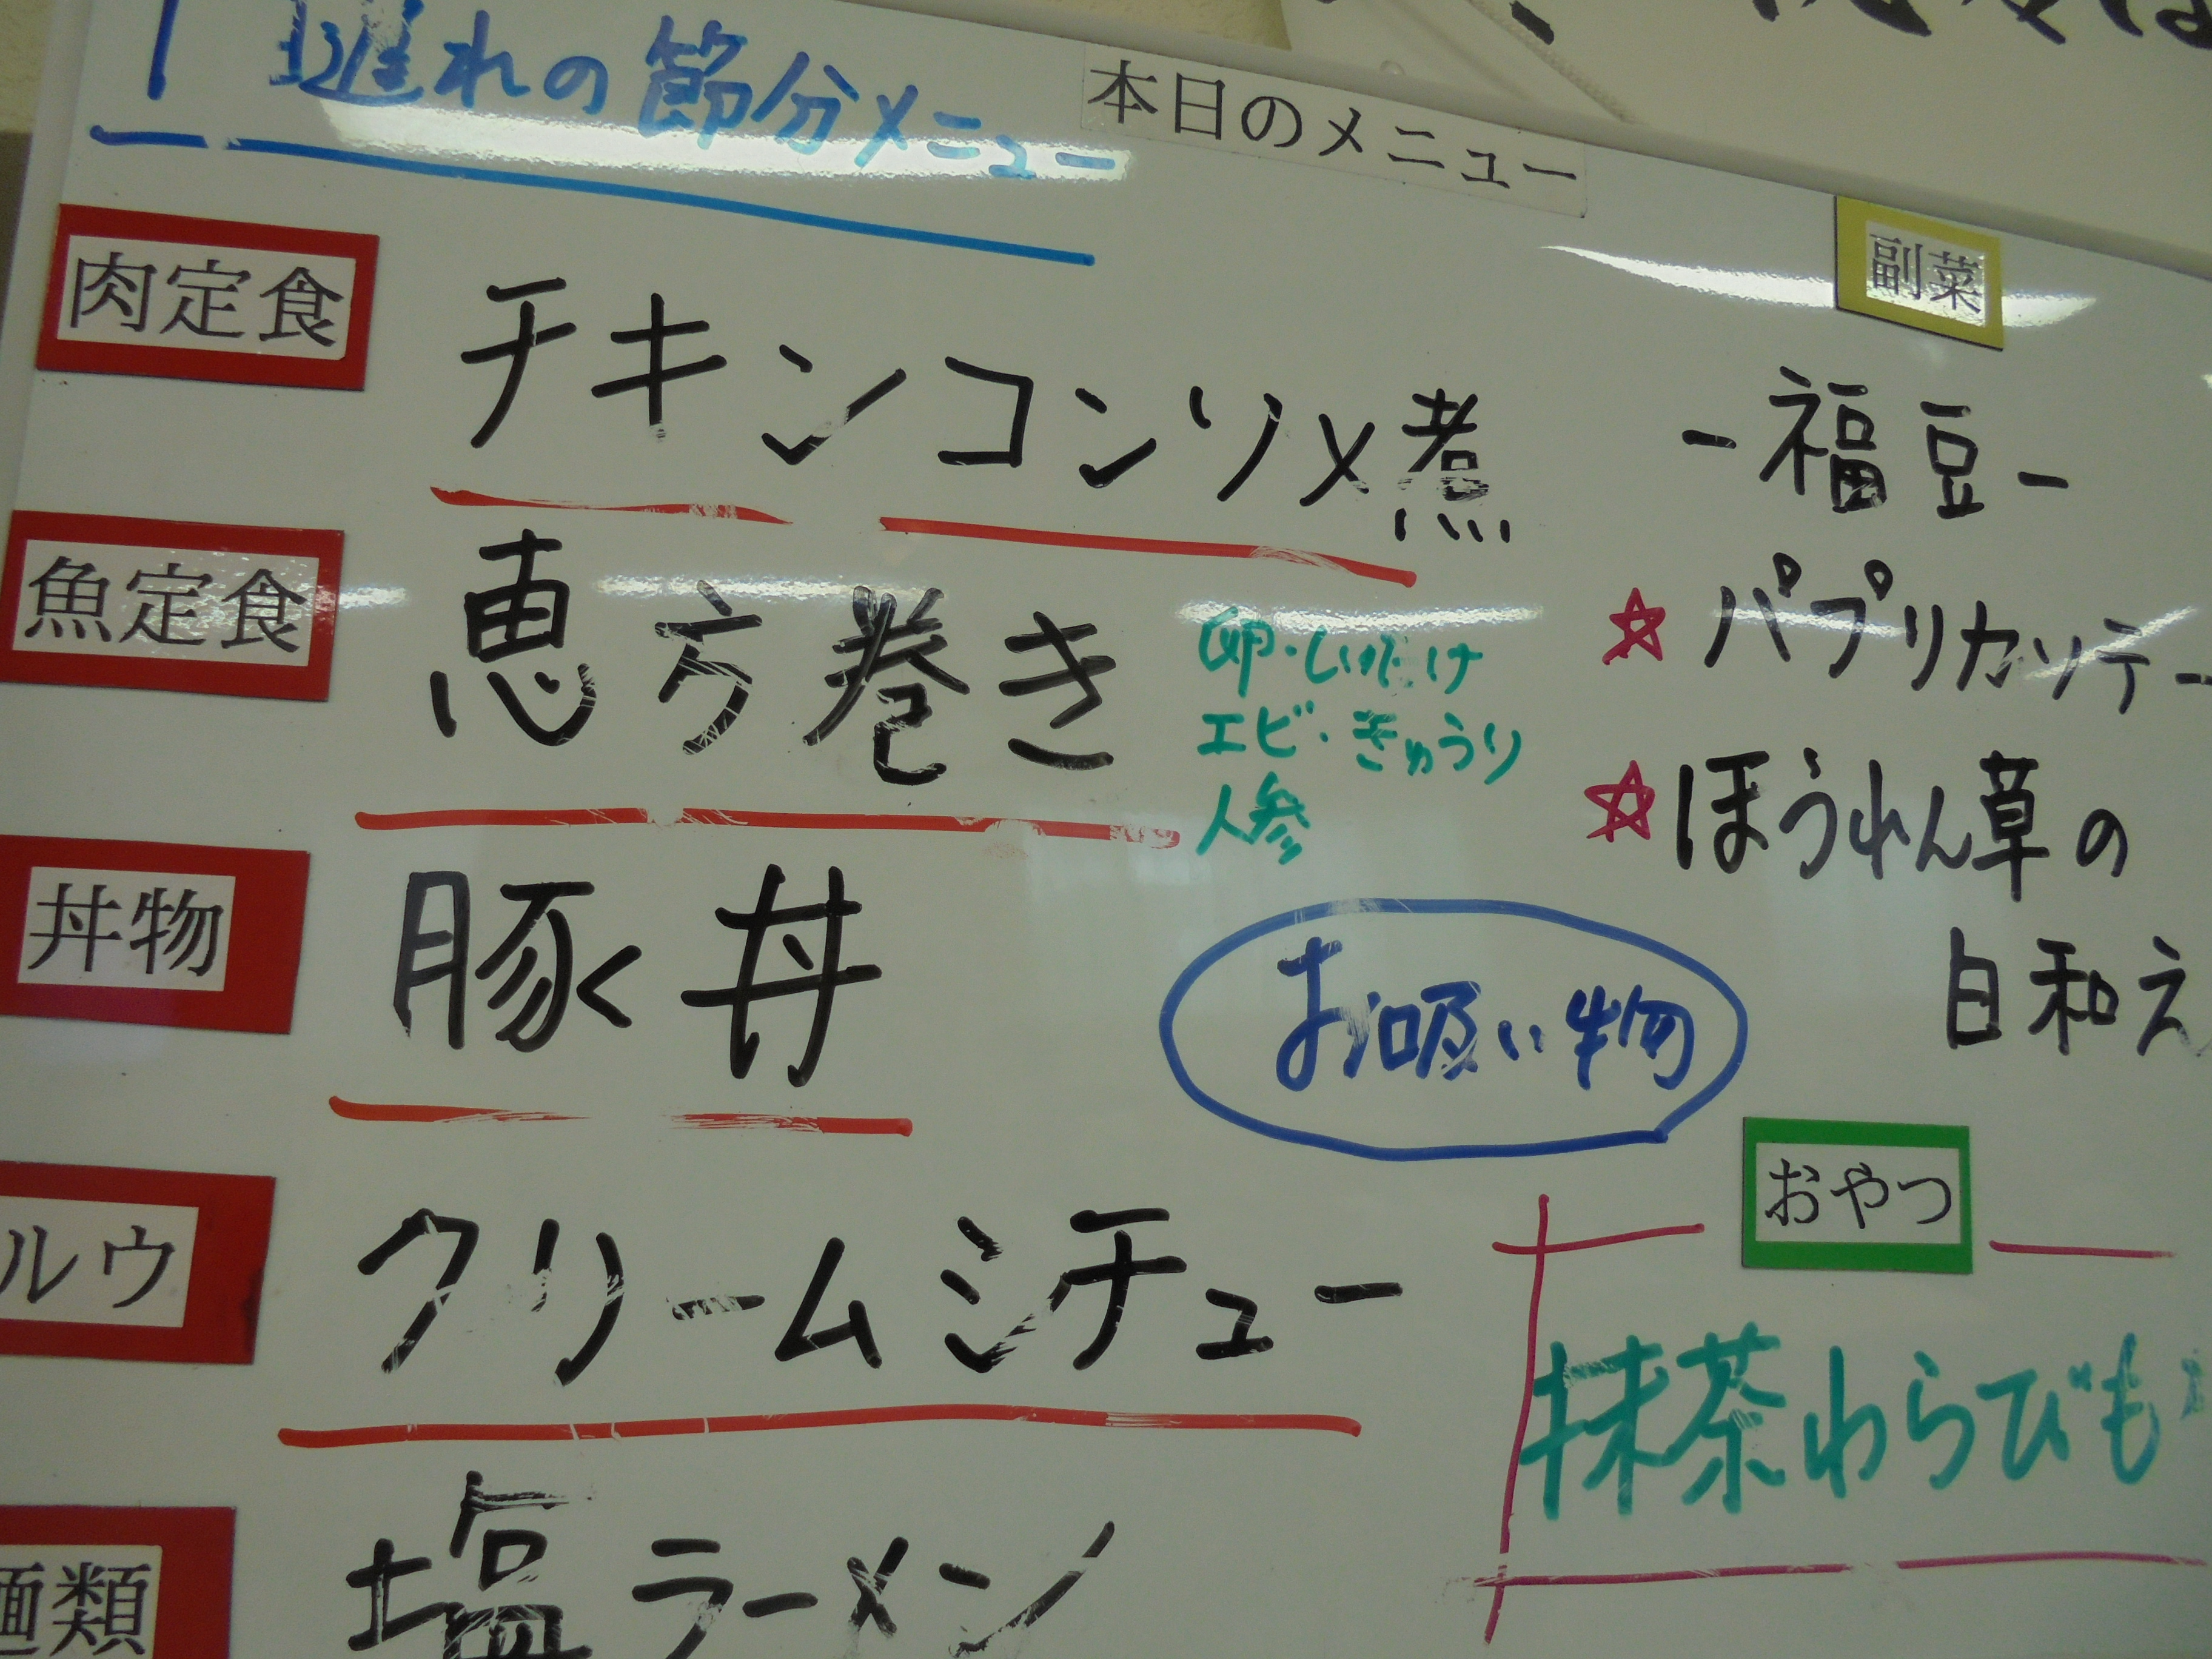 遅れの節分メニュー
本日のメニュー
肉定食
チキンコンソメ煮
魚定食
恵方巻き
卵・しいたけ
エビ・きゅうり
人参
丼物
豚丼
お吸い物
ルウ
クリームシチュー
麺類
塩ラーメン
副菜
-福豆-
☆パプリカソテー
☆ほうれん草の
白和え
おやつ
抹茶わらびも